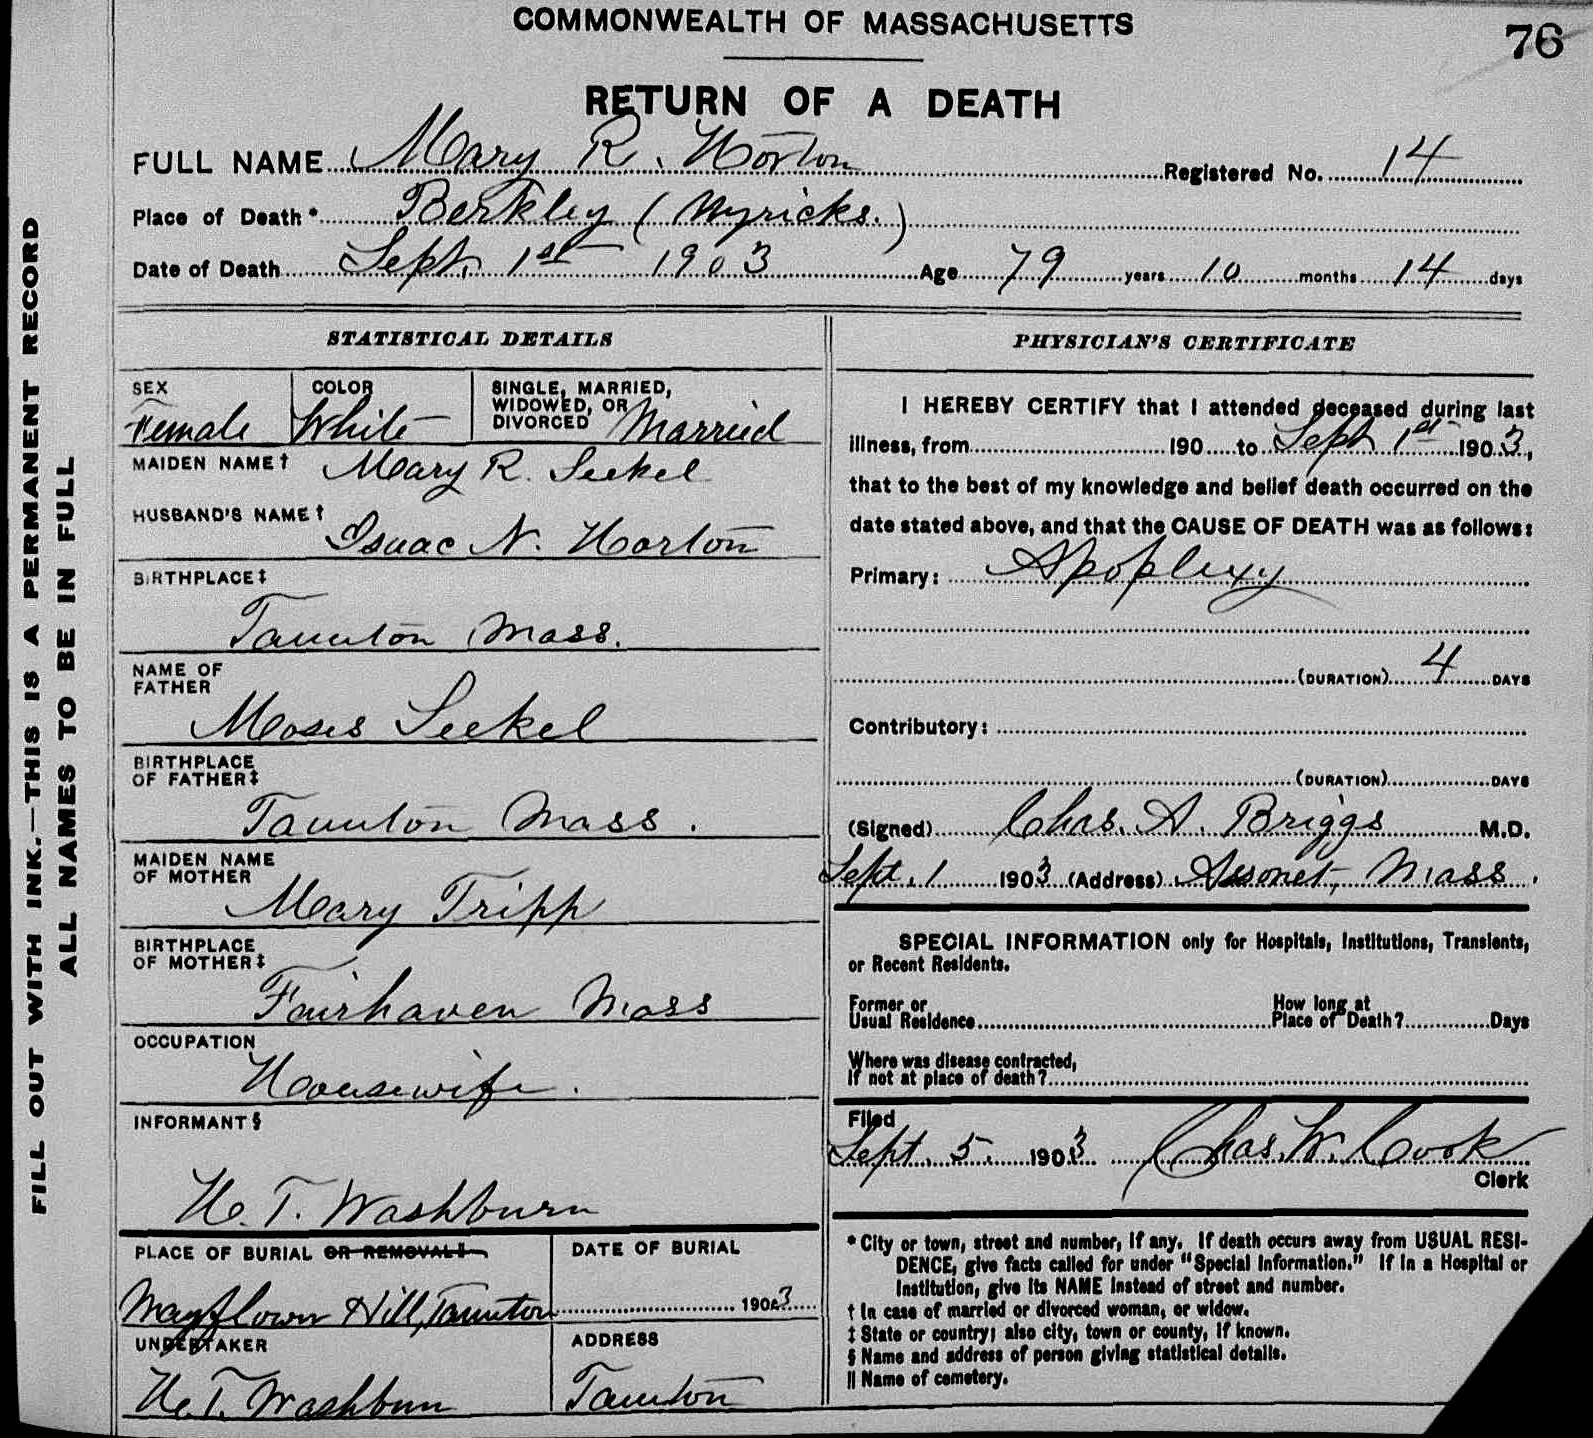 COMMONWEALTH OF MASSACHUSETTS
76
RETURN OF A DEATH
FULL NAME Mary R. Horton Registered No. 14
Place of Death* Berkley (Myricks.)
Date of Death Sept. 1st 1903 Age 79 years 10 months 14 days
FILL OUT WITH INK.—THIS IS A PERMANENT RECORD
ALL NAMES TO BE IN FULL
STATISTICAL DETAILS
SEX
Female
COLOR
White
SINGLE, MARRIED,
WIDOWED, OR
DIVORCED Married
MAIDEN NAME† Mary R. Seekel
HUSBAND'S NAME† Isaac N. Horton
BIRTHPLACE‡
Taunton Mass.
NAME OF
FATHER
Moses Seekel
BIRTHPLACE
OF FATHER‡
Taunton Mass.
MAIDEN NAME
OF MOTHER
Mary Tripp
BIRTHPLACE
OF MOTHER‡
Fairhaven Mass
OCCUPATION
Housewife.
INFORMANT§
H. T. Washburn
PLACE OF BURIAL OR REMOVAL‖
Mayflower Hill, Taunton
DATE OF BURIAL
1903
UNDERTAKER
H. T. Washburn
ADDRESS
Taunton
PHYSICIAN'S CERTIFICATE
I HEREBY CERTIFY that I attended deceased during last
illness, from 190 to Sept 1st 1903,
that to the best of my knowledge and belief death occurred on the
date stated above, and that the CAUSE OF DEATH was as follows:
Primary: Apoplexy
(DURATION) 4 DAYS
Contributory:
(DURATION) DAYS
(Signed) Chas. A. Briggs M.D.
Sept. 1 1903 (Address) Assonet, Mass.
SPECIAL INFORMATION only for Hospitals, Institutions, Transients,
or Recent Residents.
Former or
Usual Residence
How long at
Place of Death? Days
Where was disease contracted,
If not at place of death?
Filed
Sept. 5. 1903 Chas. W. Cook
Clerk
* City or town, street and number, if any. If death occurs away from USUAL RESI-
DENCE, give facts called for under "Special Information." If in a Hospital or
Institution, give its NAME instead of street and number.
† In case of married or divorced woman, or widow.
‡ State or country; also city, town or county, if known.
§ Name and address of person giving statistical details.
‖ Name of cemetery.